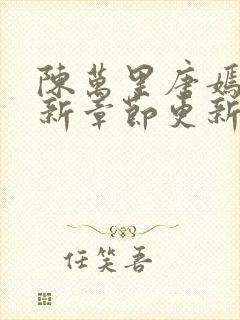 陳萬里唐嫣
新章節更新
任笑吾